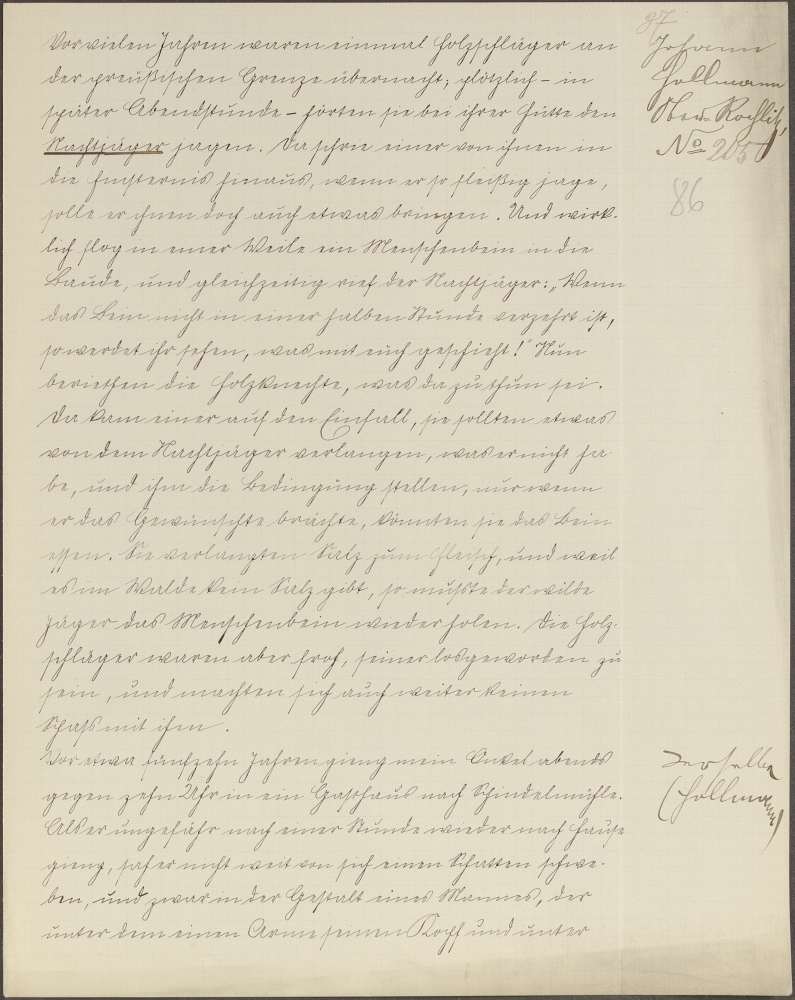 97
Vor vielen Jahren waren einmal Holzschläger an
der preußischen Grenze übernacht; plötzlich – in
später Abendstunde – hörten sie bei ihrer Hütte den
Nachtjäger jagen. Da schrie einer von ihnen in
die Finsternis hinaus, wenn er so fleißig jage,
solle er ihnen doch auch etwas bringen. Und wirk-
lich flog in einer Weile ein Menschenbein in die
Baude, und gleichzeitig rief der Nachtjäger: „Wenn
das Bein nicht in einer halben Stunde verzehrt ist,
so werdet ihr sehen, was mit euch geschieht!" Nun
beriethen die Holzknechte, was da zu thun sei.
Da kam einer auf den Einfall, sie sollten etwas
von dem Nachtjäger verlangen, was er nicht ha-
be, und ihm die Bedingung stellen, nur wenn
er das Gewünschte brächte, könnten sie das Bein
essen. Sie verlangten Salz zum Fleisch, und weil
es im Walde kein Salz gibt, so mußte der wilde
Jäger das Menschenbein wieder holen. Die Holz-
schläger waren aber froh, seiner losgeworden zu
sein, und machten sich auch weiter keinen
Spaß mit ihm.
Vor etwa fünfzehn Jahren gieng mein Onkel abends
gegen zehn Uhr in ein Gasthaus nach Spindelmühle.
Als er ungefähr nach einer Stunde wieder nach Hause
gieng, sah er nicht weit von sich einen Schatten schwe-
ben, und zwar in der Gestalt eines Mannes, der
unter dem einen Arme seinen Kopf und unter
Johann
Hollmann
Ober-Rochlitz,
No 205
86
Derselbe
(Hollmann)